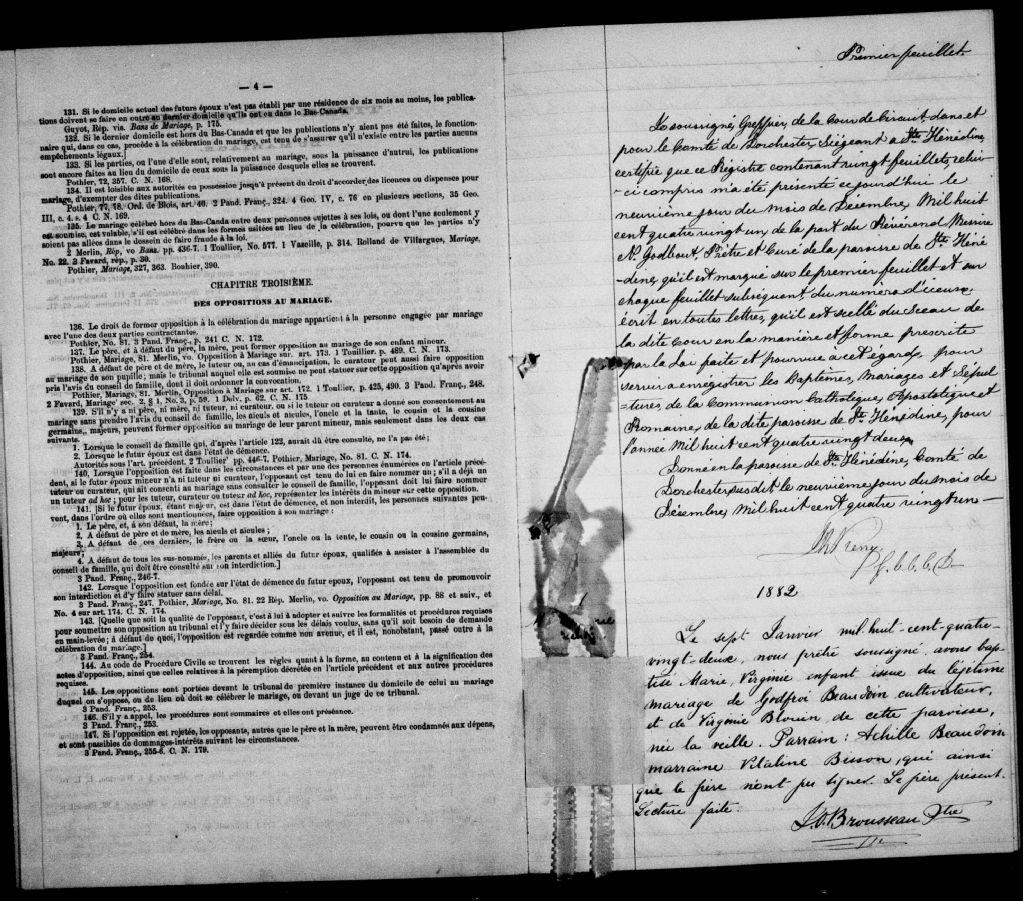 — 4 —
131. Si le domicile actuel des futurs époux n'est pas établi par une résidence de six mois au moins, les publica-
tions doivent se faire en outre au dernier domicile qu'ils ont eu dans le Bas-Canada.
Guyot, Rép. vis. Bans de Mariage, p. 175.
132. Si le dernier domicile est hors du Bas-Canada et que les publications n'y aient pas été faites, le fonction-
naire qui, dans ce cas, procède à la célébration du mariage, est tenu de s'assurer qu'il n'existe entre les parties aucuns
empêchements légaux.
133. Si les parties, ou l'une d'elle sont, relativement au mariage, sous la puissance d'autrui, les publications
sont encore faites au lieu du domicile de ceux sous la puissance desquels elles se trouvent.
Pothier, 72, 357. C. N. 168.
134. Il est loisible aux autorités en possession jusqu'à présent du droit d'accorder des licences ou dispenses pour
mariage, d'exempter des dites publications.
Pothier, 77, 78. Ord. de Blois, art. 40. 2 Pand. Franç., 324. 4 Geo. IV, c. 76 en plusieurs sections, 35 Geo.
III, c. 4. s. 4 C. N. 169.
135. Le mariage célébré hors du Bas-Canda entre deux personnes sujettes à ses lois, ou dont l'une seulement y
est soumise, est valable, s'il est célébré dans les formes usitées au lieu de la célébration, pourvu que les parties n'y
soient pas allées dans le dessein de faire fraude à la loi.
2 Merlin, Rép, vo Bans. pp. 436-7. 1 Toullier, No. 577. 1 Vazeille, p. 314. Rolland de Villargues, Mariage,
No. 22. 3 Favard, rép., p. 30.
Pothier, Mariage, 327, 363. Bouhier, 390.
CHAPITRE TROISIÈME.
DES OPPOSITIONS AU MARIAGE.
136. Le droit de former opposition à la célébration du mariage appartient à la personne engagée par mariage
avec l'une des deux parties contractantes.
Pothier, No. 81. 3 Pand. Franç., p. 241 C. N. 172.
137. Le père, et à défaut du père, la mère, peut former opposition au mariage de son enfant mineur.
Pothier, Mariage, 81. Merlin, vo. Opposition à Mariage sur. art. 173. 1 Toullier. p. 489. C. N. 173.
138. A défaut de père et de mère, le tuteur ou, au cas d'émancipation, le curateur peut aussi faire opposition
au mariage de son pupille; mais le tribunal auquel elle est soumise ne peut statuer sur cette opposition qu'après avoir
pris l'avis du conseil de famille, dont il doit ordonner la convocation.
Pothier, Mariage, 81. Merlin, Opposition à Mariage sur art. 172. 1 Toullier, p. 425, 490. 3 Pand. Franç., 248.
2 Favard, Mariage' sec. 2. § 1, No. 3, p. 59. 1 Delv. p. 62. C. N. 175.
139. S'il n'y a ni père, ni mère, ni tuteur, ni curateur, ou si le tuteur ou curateur a donné son consentement au
mariage sans prendre l'avis du conseil de famille, les aïeuls et aïeules, l'oncle et la tante, le cousin et la cousine
germains, majeurs, peuvent former opposition au mariage de leur parent mineur, mais seulement dans les deux cas
suivants.
1. Lorsque le conseil de famille qui, d'après l'article 122, aurait dû être consulté, ne l'a pas été;
2. Lorsque le futur époux est dans l'état de démence.
Autorités sous l'art. précédent. 2 Toullier, pp. 446-7. Pothier, Mariage, No. 81. C. N. 174.
140. Lorsque l'opposition est faite dans les circonstances et par une des personnes énumérées en l'article précé-
dent, si le futur époux mineur n'a ni tuteur ni curateur, l'opposant est tenu de lui en faire nommer un; s'il a déjà un
tuteur ou curateur, qui ait consenti au mariage sans consulter le conseil de famille, l'opposant doit lui faire nommer
un tuteur ad hoc; pour les tuteur, curateur ou tuteur ad hoc, représenter les intérêts du mineur sur cette opposition.
141. [Si le futur époux, étant majeur, est dans l'état de démence, et non interdit, les personnes suivantes peu-
vent, dans l'ordre où elles sont mentionnées, faire opposition à son mariage:
1. Le père, et, à son défaut, la mère;
2. A défaut de père et de mère, les aïeuls et aïeules;
3. A défaut de ces derniers, le frère ou la sœur, l'oncle ou la tante, le cousin ou la cousine germains,
majeurs;
4. A défaut de tous les sus-nommés, les parents et alliés du futur époux, qualifiés à assister à l'assemblée du
conseil de famille, qui doit être consulté sur son interdiction.]
3 Pand. Franç., 246-7.
142. Lorsque l'opposition est fondée sur l'état de démence du futur epoux, l'opposant est tenu de promouvoir
son interdiction et d'y faire statuer sans délai.
3 Pand. Franç., 247. Pothier, Mariage, No. 81. 22 Rép. Merlin, vo. Opposition au Mariage, pp. 88 et suiv., et
No. 4 sur art. 174. C. N. 174.
143. [Quelle que soit la qualité de l'opposant, c'est à lui à adopter et suivre les formalités et procédures requises
pour soumettre son opposition au tribunal et l'y faire décider sous les délais voulus, sans qu'il soit besoin de demande
en main-levée; à défaut de quoi, l'opposition est regardée comme non avenue, et il est, nonobstant, passé outre à la
célébration du mariage.]
3 Pand. Franç., 254.
144. Au code de Procédure Civile se trouvent les règles quant à la forme, au contenu et à la signification des
actes d'opposition, ainsi que celles relatives à la péremption décrétée en l'article précédent et aux autres procédures
requises.
145. Les oppositions sont portées devant le tribunal de première instance du domicile de celui au mariage
duquel on s'oppose, ou du lieu où doit se célébrer le mariage, ou devant un juge de ce tribunal.
3 Pand. Franç., 253.
146. S'il y a appel, les procédures sont sommaires et elles ont préséance.
3 Pand. Franç., 253.
147. Si l'opposition est rejetée, les opposants, autres que le père et la mère, peuvent être condamnés aux dépens,
et sont passibles de dommages-intérêts suivant les circonstances.
3 Pand. Franç., 255-6. C. N. 179.
Premier feuillet.
Je soussigné, Greffier, de la Cour de Circuit dans et
pour le Comté de Dorchester, Siégeant à Ste Hénédine,
certifie que ce Régistre contenant vingt feuillets, celui-
-ci compris m'a été présenté ce jourd'hui le
neuvième jour du mois de Décembre, Mil huit
cent quatre vingt un, de la part du Révérend Messire
N. Godbout, Prêtre et Curé de la paroisse de Ste Héné-
dine, qu'il est marqué sur le premier feuillet et sur
chaque feuillet subséquent, du numéro d'iceux,
écrit en toutes lettres, qu'il est scellé du Sceau de
la dite Cour en la manière et forme prescrite
par la Loi faite et pourvue à cet égard, pour
servir à enregistrer les Baptêmes, Mariages et Sépul-
=tures, de la Communion Catholique, Apostolique et
Romaine, de la dite paroisse de Ste Hénédine, pour
l'année Mil huit cent quatre vingt deux.
Donné en la paroisse de Ste Hénédine, Comté de
Dorchester, susdit le neuvième jour du mois de
Décembre, Mil huit cent quatre vingt un —
1882
Le sept Janvier mil-huit-cent-quatre-
vingt-deux, nous prêtre soussigné avons bap-
tisé Marie, Virginie enfant issue du légitime
mariage de Godfroi Beaudoin cultivateur,
et de Virginie Blouin, de cette paroisse,
née la veille. Parrain: Achille Beaudoin
marraine Vitaline Bisson, qui ainsi
que le père n'ont pu signer. Le père présent.
Lecture faite.
J. O. Brousseau Ptre